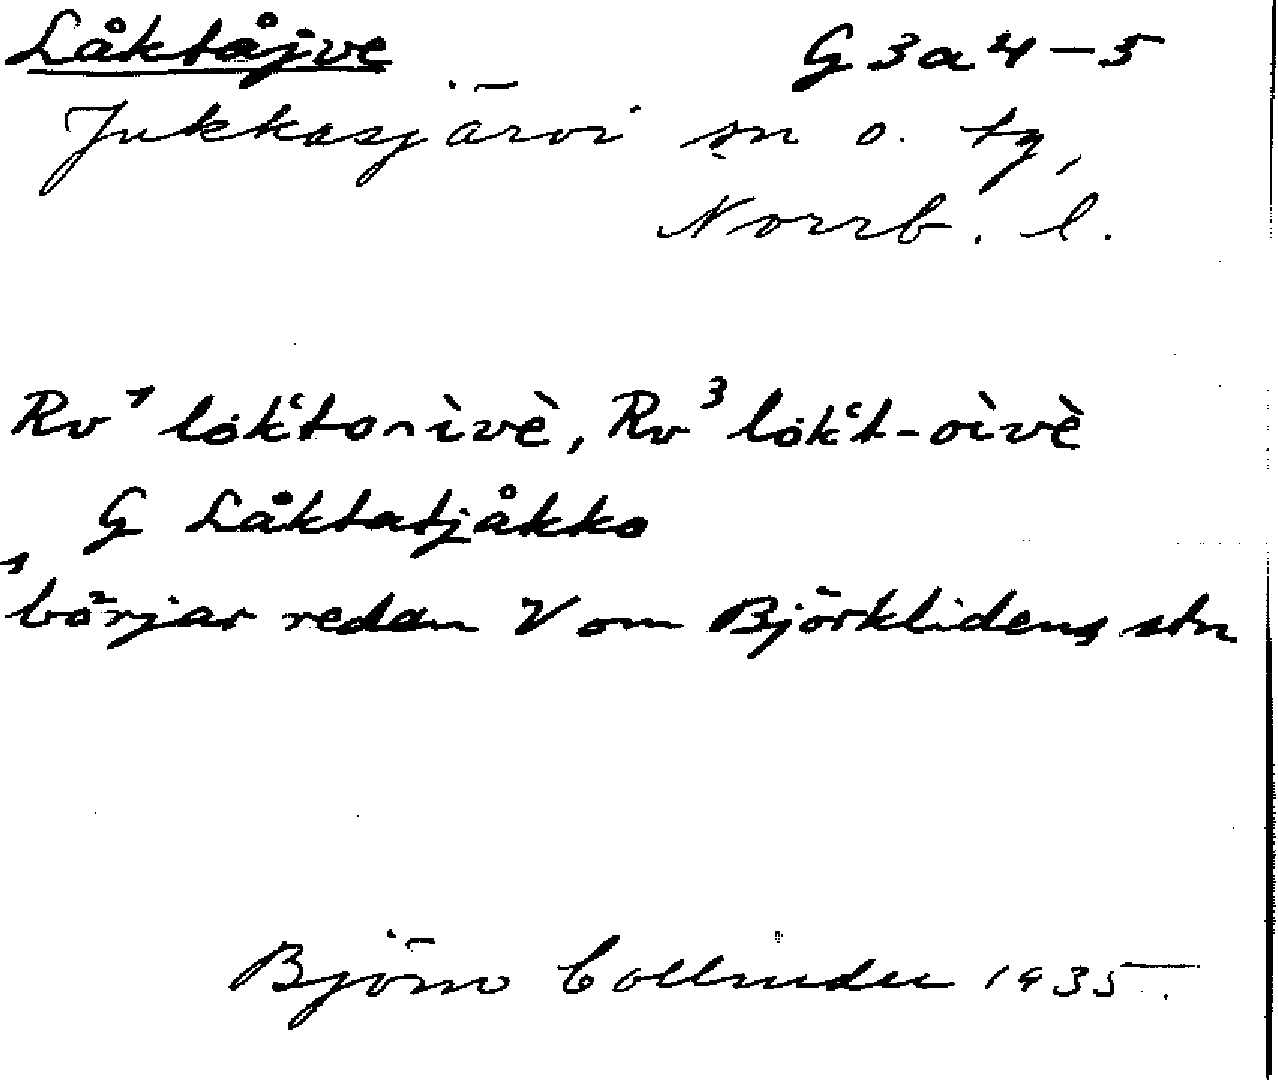 Låktåjve G3a4-5
Jukkasjärvi sn o. tg,
Norrb. l.
Rv¹ lokʻto-ìvè, Rv³ lokʻt-oìvè
G Låktatjåkko
¹börjar redan V om Björklidens stn
Björn Collinder 1935.